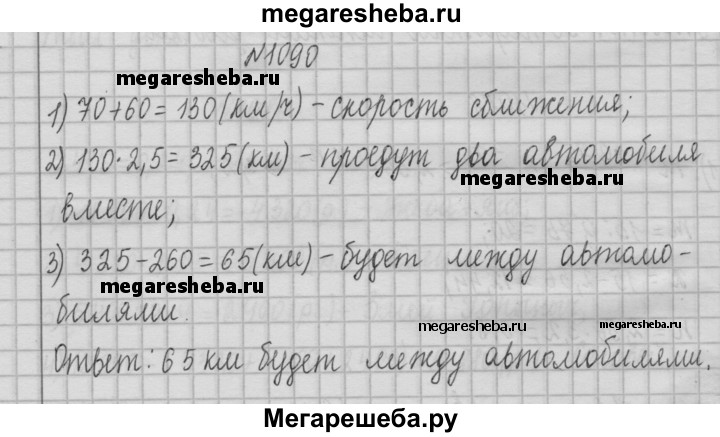 megaresheba.ru
№1090
megaresheba.ru
1) 70+60=130(км/ч) - скорость сближения;
2) 130·2,5=325(км) - проедут два автомобиля
megaresheba.ru
вместе;
3) 325-260=65(км) - будет между автомо-
megaresheba.ru
билями.
megaresheba.ru
megaresheba.ru
Ответ: 65 км будет между автомобилями.
Мегарешеба.ру